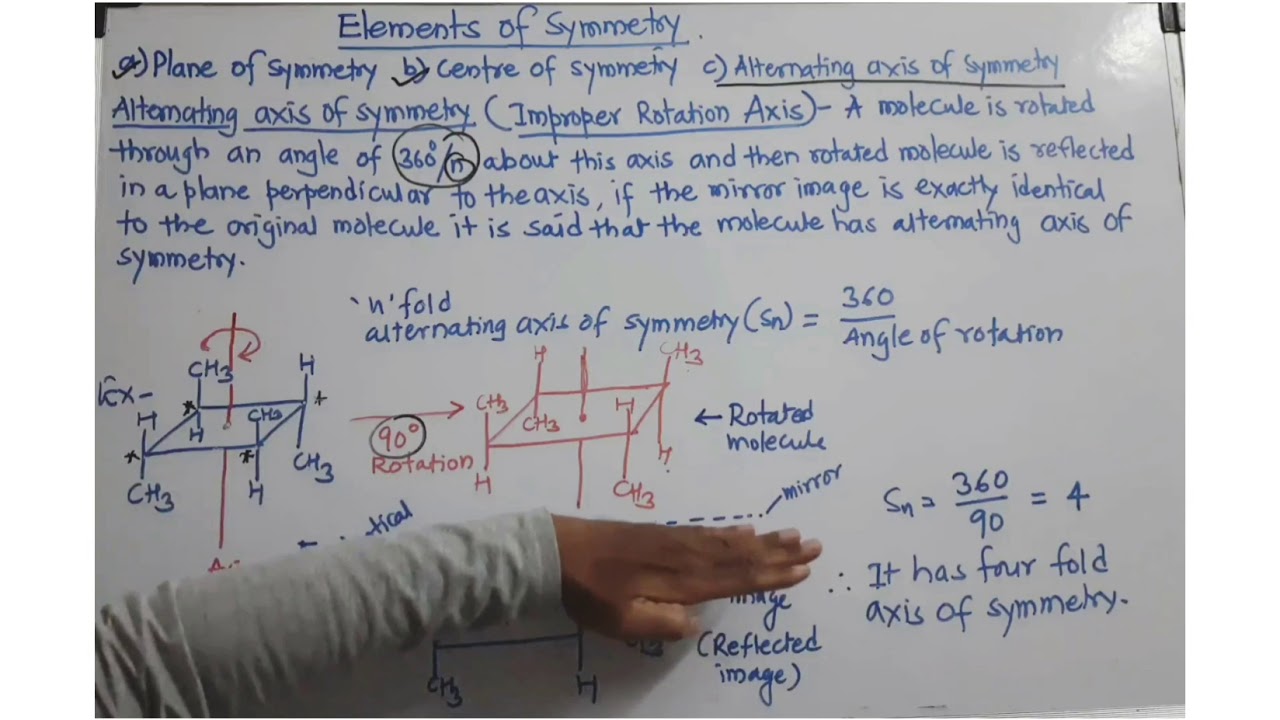 Elements of Symmetry.
a) Plane of symmetry b) Centre of symmetry c) Alternating axis of symmetry
Alternating axis of symmetry (Improper Rotation Axis)- A molecule is rotated
through an angle of 360°/n about this axis and then rotated molecule is reflected
in a plane perpendicular to the axis, if the mirror image is exactly identical
to the original molecule it is said that the molecule has alternating axis of
symmetry.
'n' fold
alternating axis of symmetry (Sn) = 360
Angle of rotation
Ex-
CH3 H
H CH3
H
CH3 H CH3
90°
Rotation
H CH3
CH3 H
CH3
H CH3 H
← Rotated
molecule
mirror
Sn = 360
90 = 4
∴ It has four fold
axis of symmetry.
(Reflected
image)
CH3 H